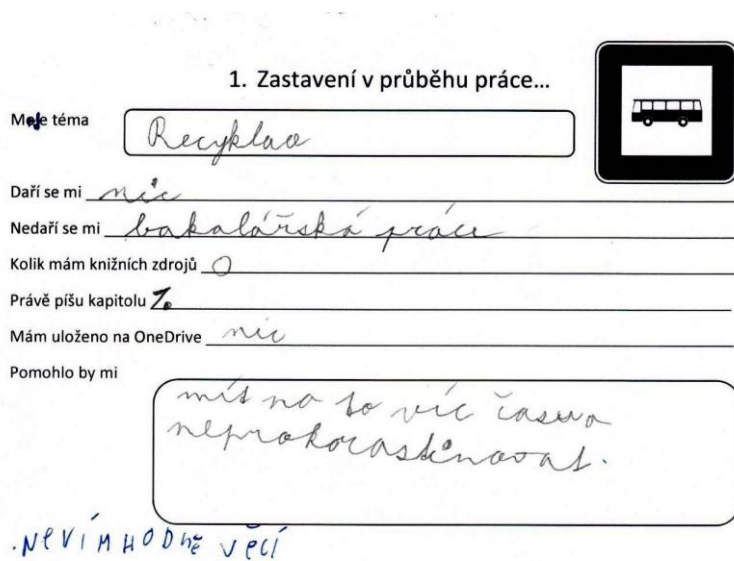 1. Zastavení v průběhu práce...
Moje téma
Recyklao
Daří se mi nic
Nedaří se mi bakalářská práce
Kolik mám knižních zdrojů 0
Právě píšu kapitolu
Mám uloženo na OneDrive nic
Pomohlo by mi
mít na to víc času a
neprokorastinovat.
.NeVíM HODně VěCí